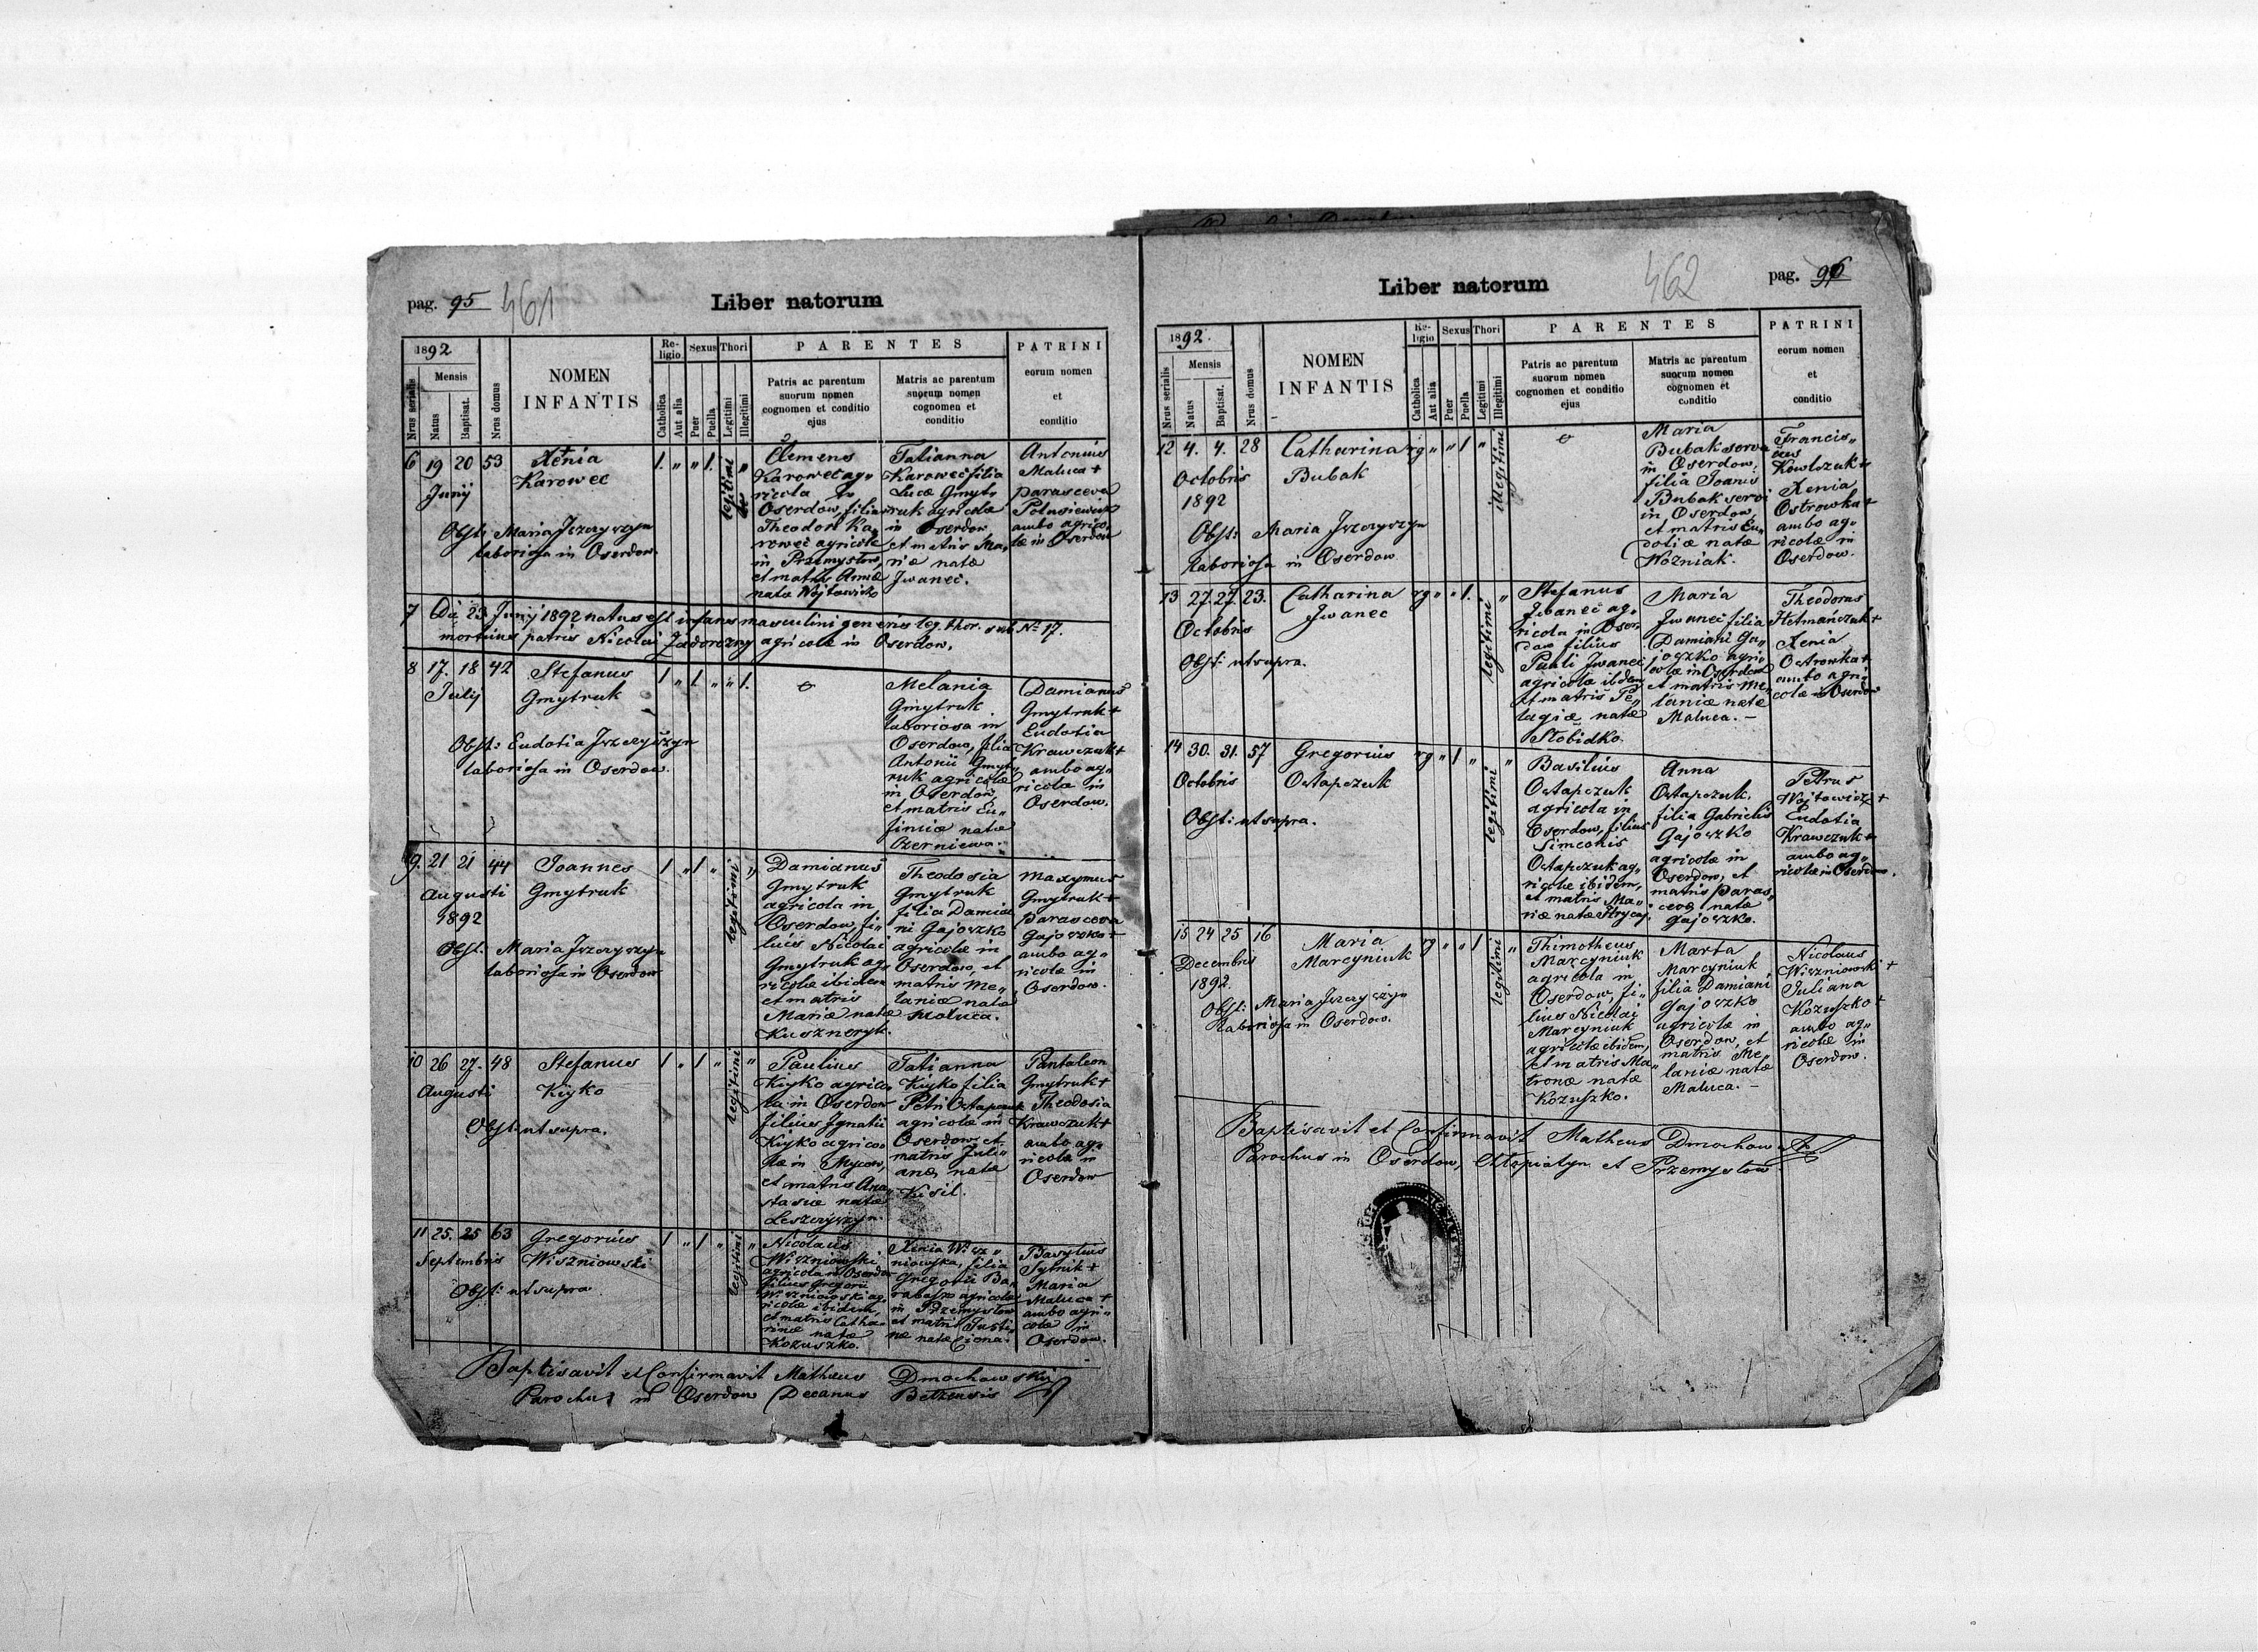 pag. 95 461 Liber natorum
1892
Nrus serialis
Mensis
Natus
Baptisat.
Nrus domus
NOMEN
INFANTIS
Re-
ligio
Catholica
Aut alia
Sexus
Puer
Puella
Thori
Legitimi
Illegitimi
PARENTES
Patris ac parentum
suorum nomen
cognomen et conditio
ejus
Matris ac parentum
suorum nomen
cognomen et
conditio
PATRINI
eorum nomen
et
conditio
6 19 20 53 Xenia
Karowec
Junij
Obst: Maria Jszczyszyn
laboriosa in Oserdow.
1. „ „ 1. legitimi „
Clemens
Karowec ag„
ricola in
Oserdow, filius
Theodori Ka„
rowec agricolæ
in Przemysłow,
et matris Annæ
natæ Wojtowicz
Tatianna
Karowec filia
Lucæ Gmyt„
ruk agricolæ
in Oserdow
et matris Ma„
riæ natæ
Jwanec.
Antonius
Maluca +
Parasceva
ambo agrico„
læ in Oserdow
7 Die 23 Junij 1892 natus est infans masculini generis leg. thor. sub Nº 17.
mortuus patris Nicolai Zadorozny agricolæ in Oserdow.
8 17. 18 42 Stefanus
Julij Gmytruk
Obst: Eudotia Jszczyszyn
laboriosa in Oserdow.
1 „ 1. „ „ 1.
Melania
Gmytruk
laboriosa in
Oserdow, filia
Antonii Gmyt„
ruk agricolæ
in Oserdow,
et matris Eu„
fimiæ natæ
Czerniewa.
Damianus
Gmytruk +
Eudotia
Krawczuk +
ambo ag„
ricolæ in
Oserdow.
9. 21 21 44 Joannes
Augusti Gmytruk
1892
Obst. Maria Jszczyszyn
laboriosa in Oserdow
1 „ 1 „ legitimi „
Damianus
Gmytruk
agricola in
Oserdow, fi„
lius Nicolai
Gmytruk ag„
ricolæ ibidem
et matris
Mariæ natæ
Kuszneryk.
Theodosia
Gmytruk
filia Damia„
ni Gajoszko
agricolæ in
Oserdow, et
matris Me„
laniæ natæ
Maluca.
Maxymus
Gmytruk +
Parasceva
Gajoszko +
ambo ag„
ricolæ in
Oserdow.
10 26 27. 48 Stefanus
Augusti Kiyko
Obst. ut supra.
1 „ 1 „ legitimi „
Paulus
Kiyko agrico„
la in Oserdow
filius Ignatii
Kiyko agrico„
læ in Mycow,
et matris Ana„
stasiæ natæ
Leszczyszyn.
Tatianna
Kiyko filia
Petri Ostapczuk
agricolæ in
Oserdow et
matris Juli„
anæ natæ
Kisil.
Pantaleon
Gmytruk +
Theodosia
Krawczuk +
ambo ag„
ricolæ in
Oserdow
11 25. 25 63 Gregorius
Septembris Wiszniowski
Obst: ut supra
1 „ 1 „ legitimi „
Nicolaus
Wiszniowski
agricola in Oserdow
filius Gregorii
Wiszniowski ag„
ricolæ ibidem,
et matris Catha„
rinæ natæ
Kozuszko.
Xenia Wisz„
niowska, filia
Gregorii Ba„
rabasz agricolæ
in Przemysłow
et matris Justi„
næ natæ Ciona.
Basylius
Sytnik +
Maria
Maluca +
ambo agri„
colæ in
Oserdow.
Baptisavit et Confirmavit Matheus Dmochowski
Parochus in Oserdow Decanus Belzensis
Liber natorum 462 pag. 96
1892.
Nrus serialis
Mensis
Natus
Baptisat.
Nrus domus
NOMEN
INFANTIS
Re-
ligio
Catholica
Aut alia
Sexus
Puer
Puella
Thori
Legitimi
Illegitimi
PARENTES
Patris ac parentum
suorum nomen
cognomen et conditio
ejus
Matris ac parentum
suorum nomen
cognomen et
conditio
PATRINI
eorum nomen
et
conditio
12 4. 4. 28 Catharina
Octobris Bubak
1892
Obst: Maria Jszczyszyn
laboriosa in Oserdow
rg „ „ 1 „ illegitimi
Maria
Bubak serva
in Oserdow,
filia Joanis
Bubak servi
in Oserdow,
et matris Eu„
dotiæ natæ
Wozniak.
Francis„
cus
Kowlczuk +
Xenia
Ostrowka +
ambo ag„
ricolæ in
Oserdow.
13 27. 27. 23. Catharina
Octobris Jwanec
Obst: ut supra.
rg „ „ 1. legitimi „
Stefanus
Jwanec ag„
ricola in Oser„
dow filius
Pauli Jwanec
agricolæ ibidem
et matris Pe„
lagiæ natæ
Słobidko.
Maria
Jwanec filia
Damiani Ga„
joszko agri„
colæ in Oserdow
et matris Me„
laniæ natæ
Maluca. –
Theodorus
Hetmańczuk +
Xenia
Ostrowka +
ambo agri„
colæ in Oserdow
14 30. 31. 57 Gregorius
Octobris Ostapczuk
Obst: ut supra.
rg „ 1 „ legitimi „
Basilius
Ostapczuk
agricola in
Oserdow, filius
Simeonis
Ostapczuk ag„
ricolæ ibidem,
et matris Ma„
riæ natæ Hrycaj
Anna
Ostapczuk,
filia Gabrielis
Gajoszko
agricolæ in
Oserdow, et
matris Paras„
cevæ natæ
Gajoszko.
Petrus
Wojtowicz +
Eudotia
Krawczuk +
ambo ag„
ricolæ in Oserdow.
15 24 25 16 Maria
Decembris Marcyniuk
1892.
Obst: Maria Jszczyszyn
laboriosa in Oserdow.
rg „ „ 1 legitimi „
Thimotheus
Marcyniuk
agricola in
Oserdow, fi„
lius Nicolai
Marcyniuk
agricolæ ibidem,
et matris Ma„
tronæ natæ
Kozuszko.
Marta
Marcyniuk
filia Damiani
Gajoszko
agricolæ in
Oserdow, et
matris Me„
laniæ natæ
Maluca. –
Nicolaus
Wiszniowski +
Juliana
Kozuszko +
ambo ag„
ricolæ in
Oserdow.
Baptisavit et Confirmavit Matheus Dmochowski
Parochus in Oserdow, Chłopiatyn et Przemysłow